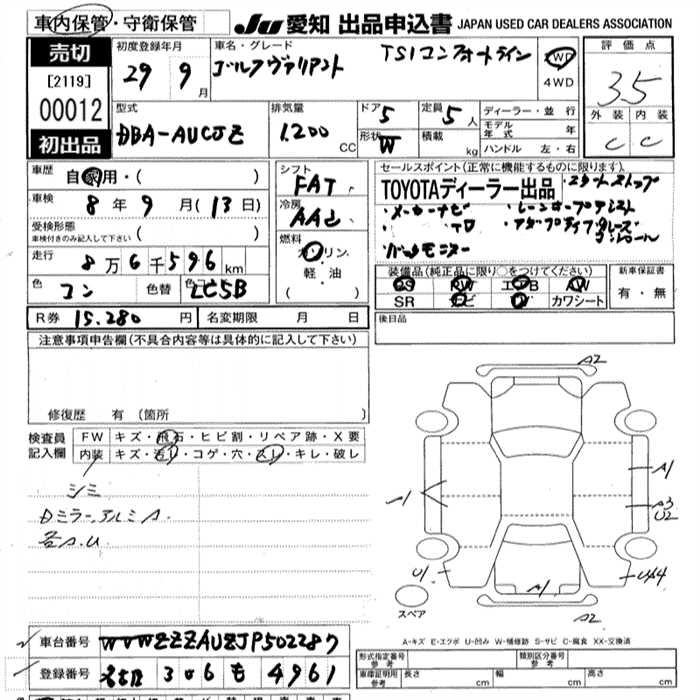 車内保管・守衛保管
JU 愛知 出品申込書 JAPAN USED CAR DEALERS ASSOCIATION
売切
[2119]
00012
初出品
初度登録年月
29 9月
車名・グレード
ゴルフヴァリアント TSIコンフォートライン
2WD
4WD
評価点
3.5
外装 内装
C C
型式
DBA-AUCJZ
排気量
1.200 CC
ドア 5
形状 W
定員 5人
積載 kg
ディーラー・並行
モデル年式 年
ハンドル 左・右
車歴
自家用・( )
車検
8年9月(13日)
受検形態
車検付きのみ記入して下さい ( )
走行
8万6千596km
色
コン 色替 色コード LC5B
シフト
FAT
冷房
AAC
燃料
ガソリン
軽・油
( )
セールスポイント(正常に機能するものに限ります)。
TOYOTAディーラー出品
・メーカーナビ
・バックモニター
装備品(純正品に限り○をつけてください)
PS PW エアB AW
SR ナビ TV カワシート
新車保証書
有・無
R券 15.280円 名変期限 月 日
後日品
注意事項申告欄(不具合内容等は具体的に記入して下さい)
修復歴 有(箇所 )
検査員記入欄
FW キズ・飛石・ヒビ割・リペア跡・X要
内装 キズ・汚レ・コゲ・穴・スレ・キレ・破レ
シミ
Dミラー、アルミA.
各A.U
A2
A1
A3
U2
A1
U1
A1
A2
スペア
A-キズ E-エクボ U-凹み W-補修跡 S-サビ C-腐食 XX-交換済
車台番号 WVWZZZAUZJP502287
登録番号 名古屋 306 も 4961
形式指定番号 参考
類別区分番号 参考
車庫証明用 参考 長さ cm 幅 cm 高さ cm